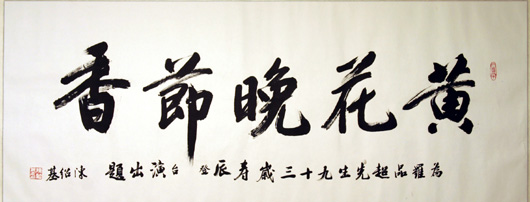 黄花晚節香
為羅品超先生九十三歲寿辰登台演出題 陳紹基